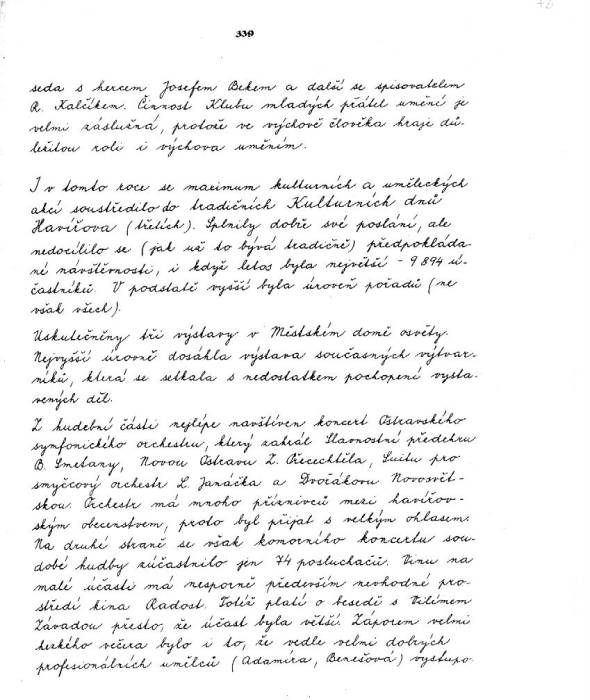 339
seda s hercem Josefem Bekem a další se spisovatelem
R. Kalčíkem. Činnost Klubu mladých přátel umění je
velmi záslužná, protože ve výchově člověka hraje dů-
ležitou roli i výchova uměním.
I v tomto roce se maximum kulturních a uměleckých
akcí soustředilo do tradičních Kulturních dnů
Havířova (třetích). Splnily dobře své poslání, ale
nedocílilo se (jak už to bývá tradičně) předpokláda
né návštěvnosti, i když letos byla největší - 9 894 ú-
častníků. V podstatě vyšší byla úroveň pořadů (ne
však všech).
Uskutečněny tři výstavy v Městském domě osvěty.
Nejvyšší úrovně dosáhla výstava současných výtvar-
níků, která se setkala s nedostatkem pochopení vysta-
vených děl.
Z hudební části nejlépe navštíven koncert Ostravského
symfonického orchestru, který zahrál Slavnostní předehru
B. Smetany, Novou Ostravu Z. Přecechtěla, Suitu pro
smyčcový orchestr L. Janáčka a Dvořákovu Novosvět-
skou. Orchestr má mnoho příznivců mezi havířov-
ským obecenstvem, proto byl přijat s velkým ohlasem.
Na druhé straně se však komorního koncertu sou-
dobé hudby zúčastnilo jen 74 posluchačů. Vinu na
malé účasti má nesporně především nevhodné pro-
středí kina Radost. Totéž platí o besedě s Vilémem
Závadou přesto, že účast byla větší. Záporem velmi
hezkého večera bylo i to, že vedle velmi dobrých
profesionálních umělců (Adamíra, Benešová) vystupo-